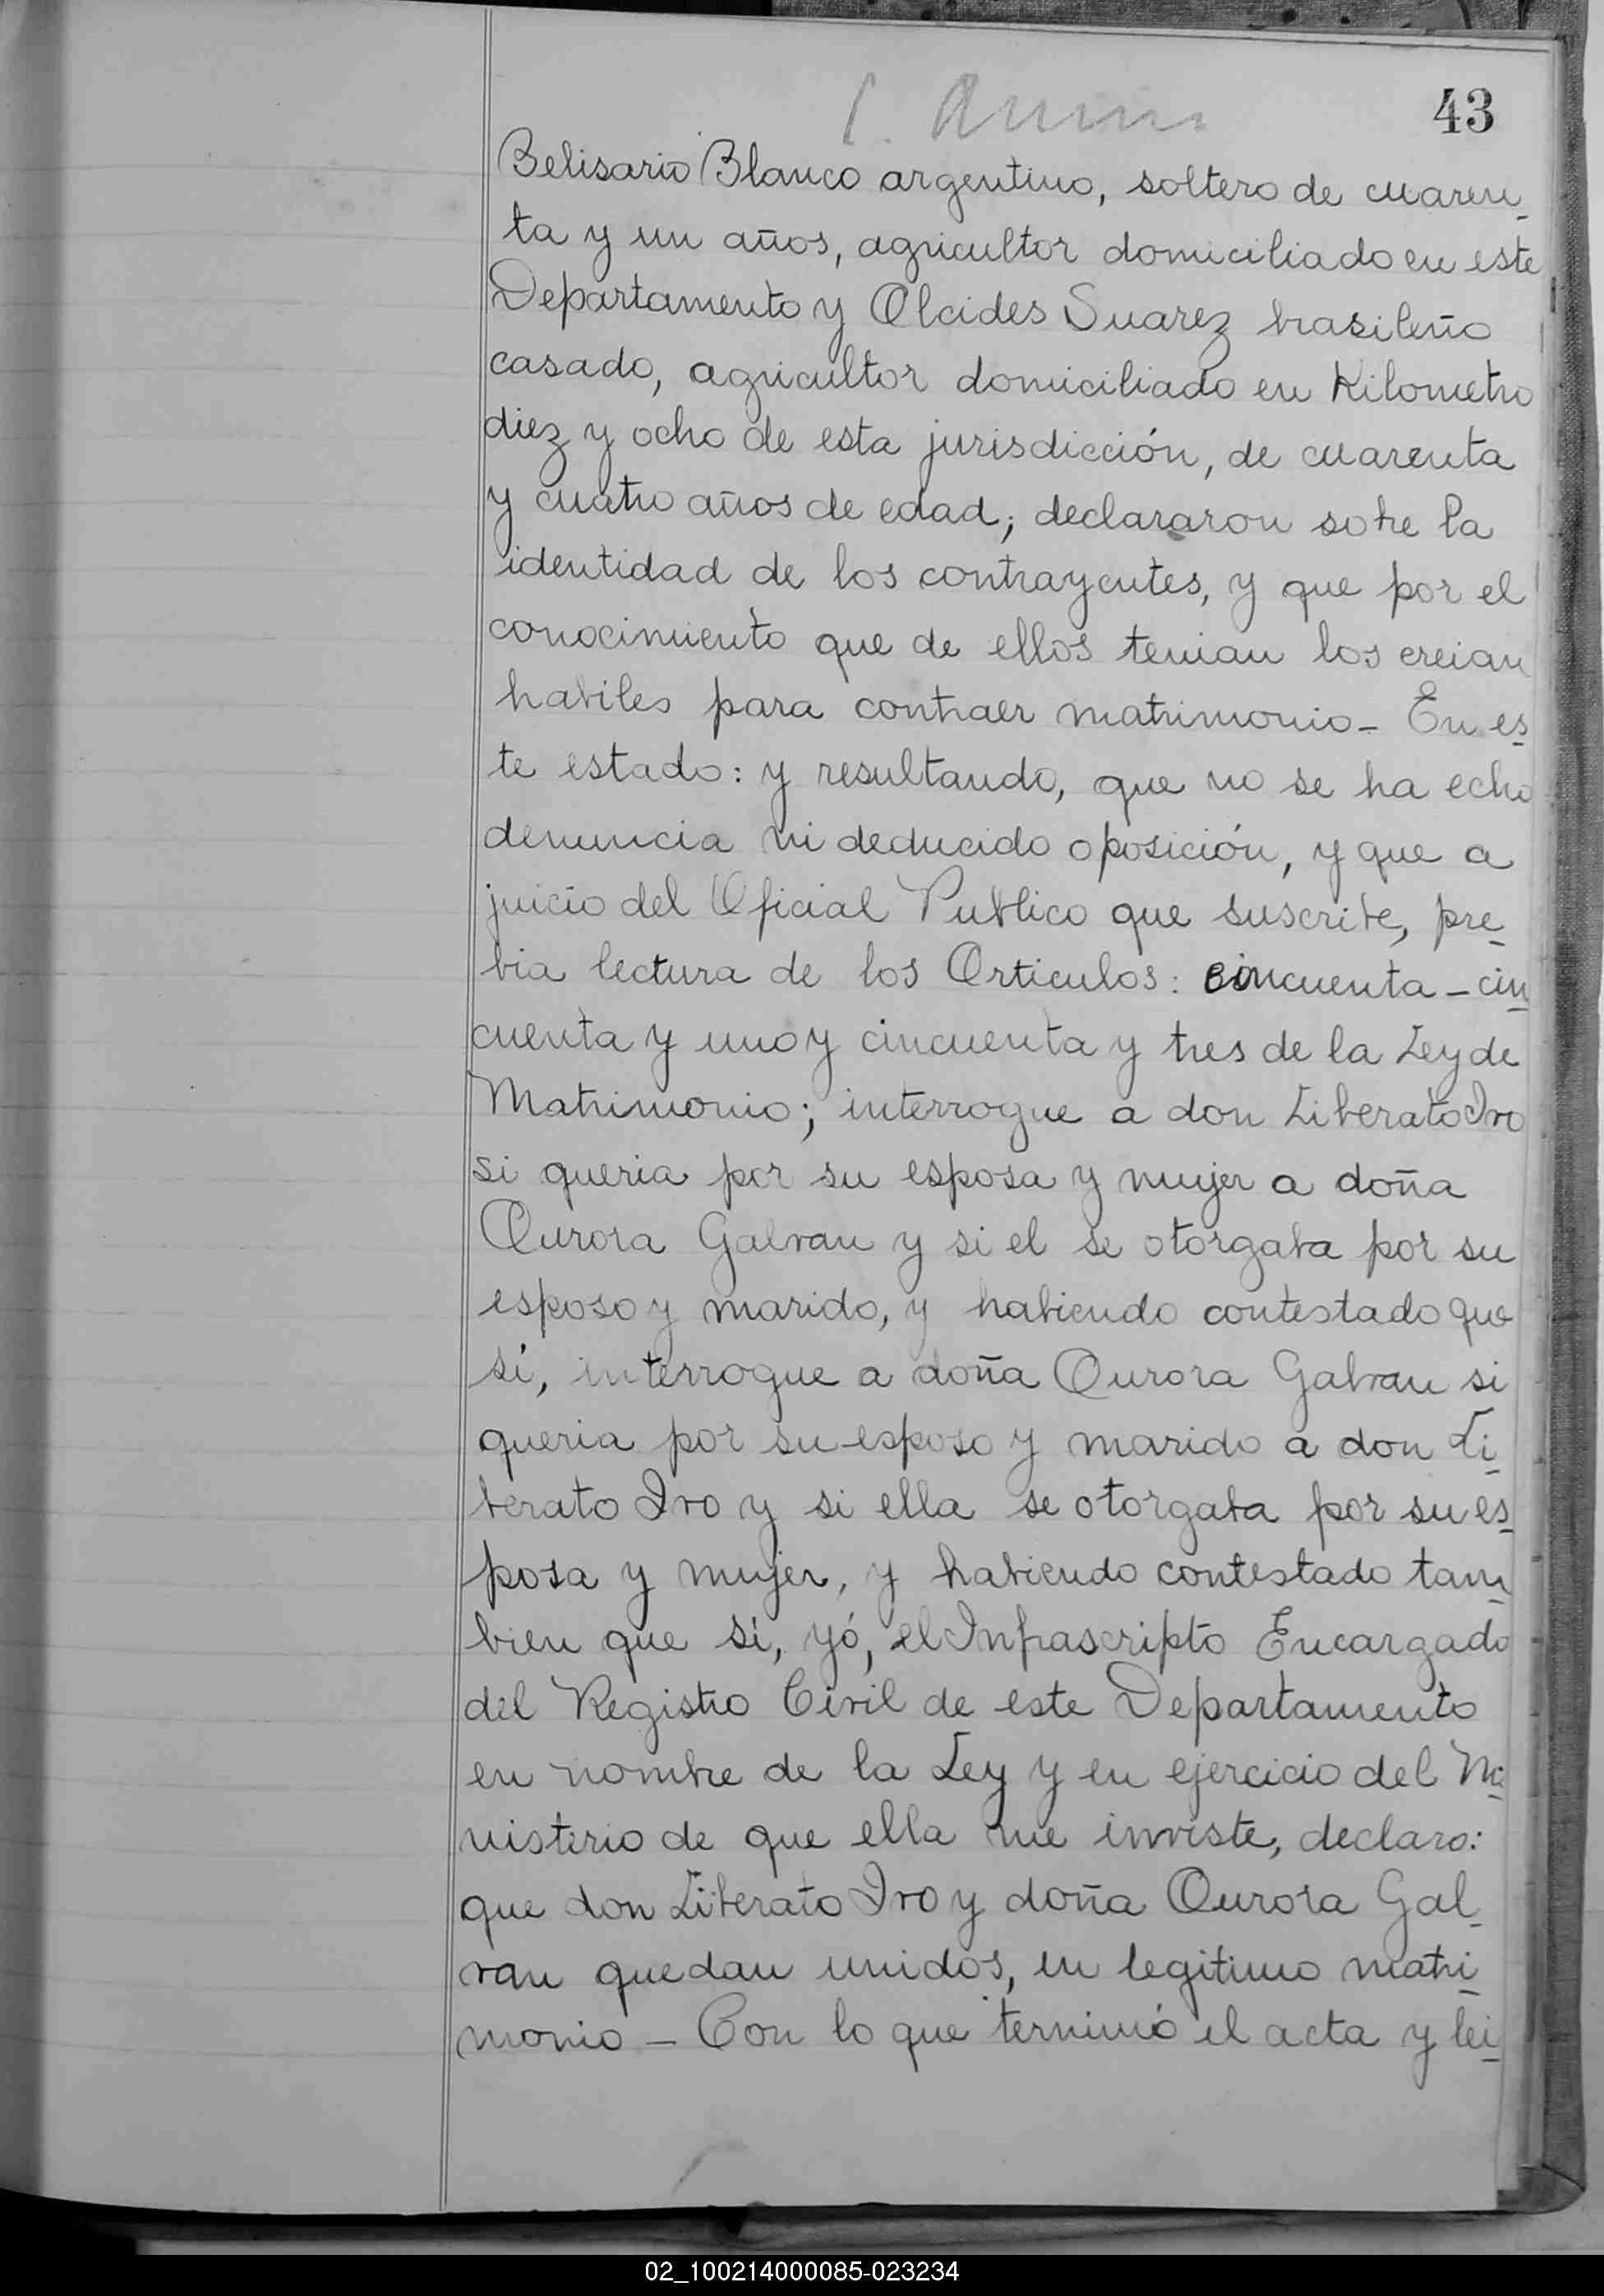 43
Belisario Blanco argentino, soltero de cuaren_
ta y un años, agricultor domiciliado en este
Departamento y Alcides Suarez brasileño
casado, agricultor domiciliado en Kilometro
diez y ocho de esta jurisdicción, de cuarenta
y cuatro años de edad; declararon sobre la
identidad de los contrayentes, y que por el
conocimiento que de ellos tenian los creian
habiles para contraer matrimonio_ En es_
te estado: y resultando, que no se ha echo
denuncia ni deducido oposición, y que a
juicio del Oficial Publico que suscribe, pre_
bia lectura de los Articulos: cincuenta_cin_
cuenta y uno y cincuenta y tres de la Ley de
Matrimonio; interrogue a don Liberato Ivo
si queria por su esposa y mujer a doña
Aurora Galvan y si el se otorgaba por su
esposo y marido, y habiendo contestado que
si, interrogue a doña Aurora Galvan si
queria por su esposo y marido a don Li_
berato Ivo y si ella se otorgaba por su es_
posa y mujer, y habiendo contestado tam_
bien que si, yó, el Infrascripto Encargado
del Registro Civil de este Departamento
en nombre de la Ley y en ejercicio del Mi_
nisterio de que ella me inviste, declaro:
que don Liberato Ivo y doña Aurora Gal_
van quedan unidos, en legitimo matri_
monio_ Con lo que terminó el acta y lei_
02_100214000085-023234